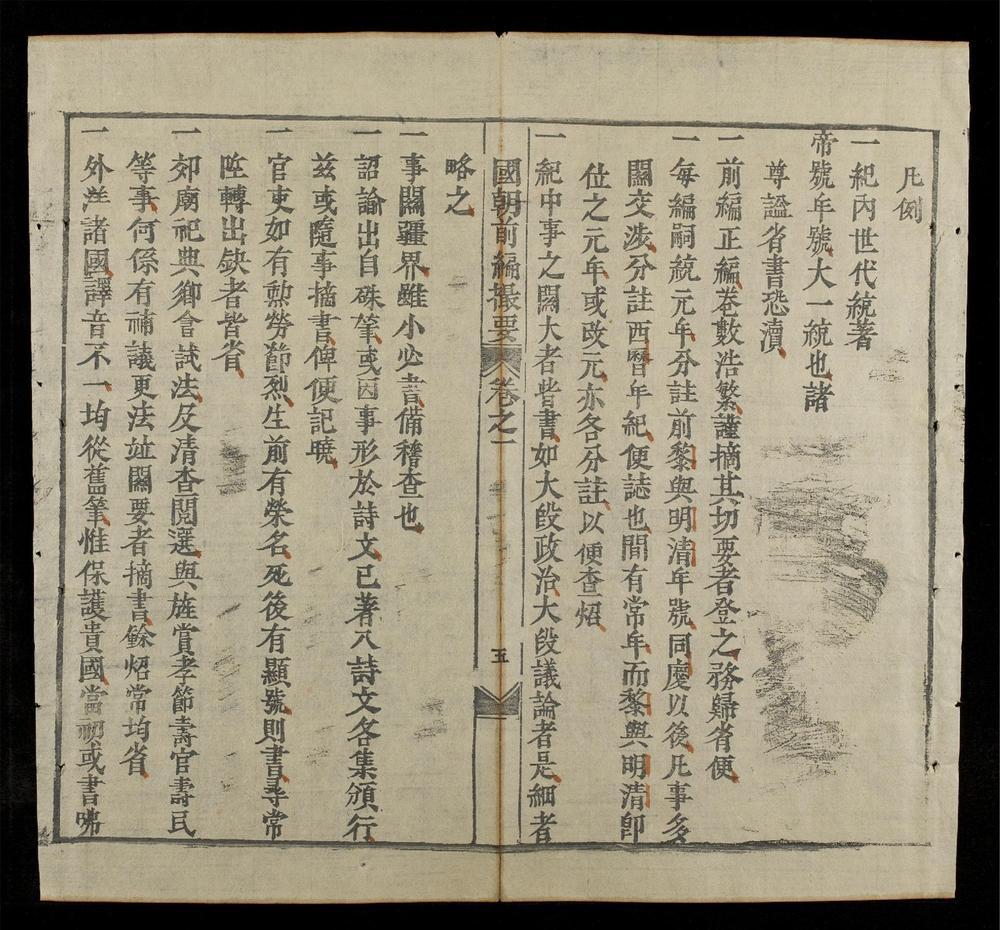 凡例
一紀內世代統著
帝號年號大一統也諸
尊謚省書恐瀆
一前編正編卷數浩繁謹摘其切要者登之務歸省便
一每編嗣統元年分註前黎與明清年號同慶以後凡事多
關交涉分註西曆年紀便誌也間有常年而黎與明清卽
位之元年或改元亦各分註以便查炤
一紀中事之關大者皆書如大段政治大段議論者是細者
國朝前編撮要 卷之一 五
略之
一事關疆界雖小必書備稽查也
一詔諭出自硃筆或因事形於詩文已著入詩文各集頒行
茲或隨事摘書俾便記曉
一官吏如有勲勞節烈生前有榮名死後有顯號則書尋常
陞轉出缺者皆省
一郊廟祀典鄉會試法及清查閱選與旌賞孝節壽官壽民
等事何係有補議更法竝關要者摘書餘炤常均省
一外洋諸國譯音不一均從舊筆惟保護貴國當初或書咈